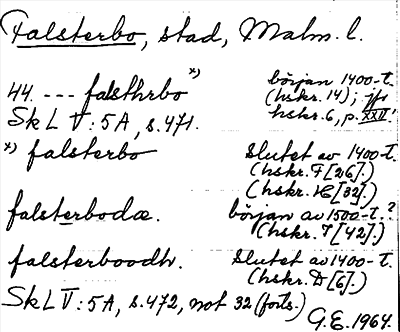 Falsterbo, stad, Malm. l.
44. --- falsthrbo *) början 1400-t.
(hskr. 14); jfr
SkL V: 5A, s. 471. hskr. 6, p. XXII.
*) falsterbo slutet av 1400-t.
(hskr. F [26].)
(hskr. K [32].)
falsterbodæ. början av 1500-t.?
(hskr. I [42].)
falsterboodh. slutet av 1400-t.
(hskr. D [6].)
SkL V: 5A, s. 472, not 32 (forts.)
G.E. 1964.